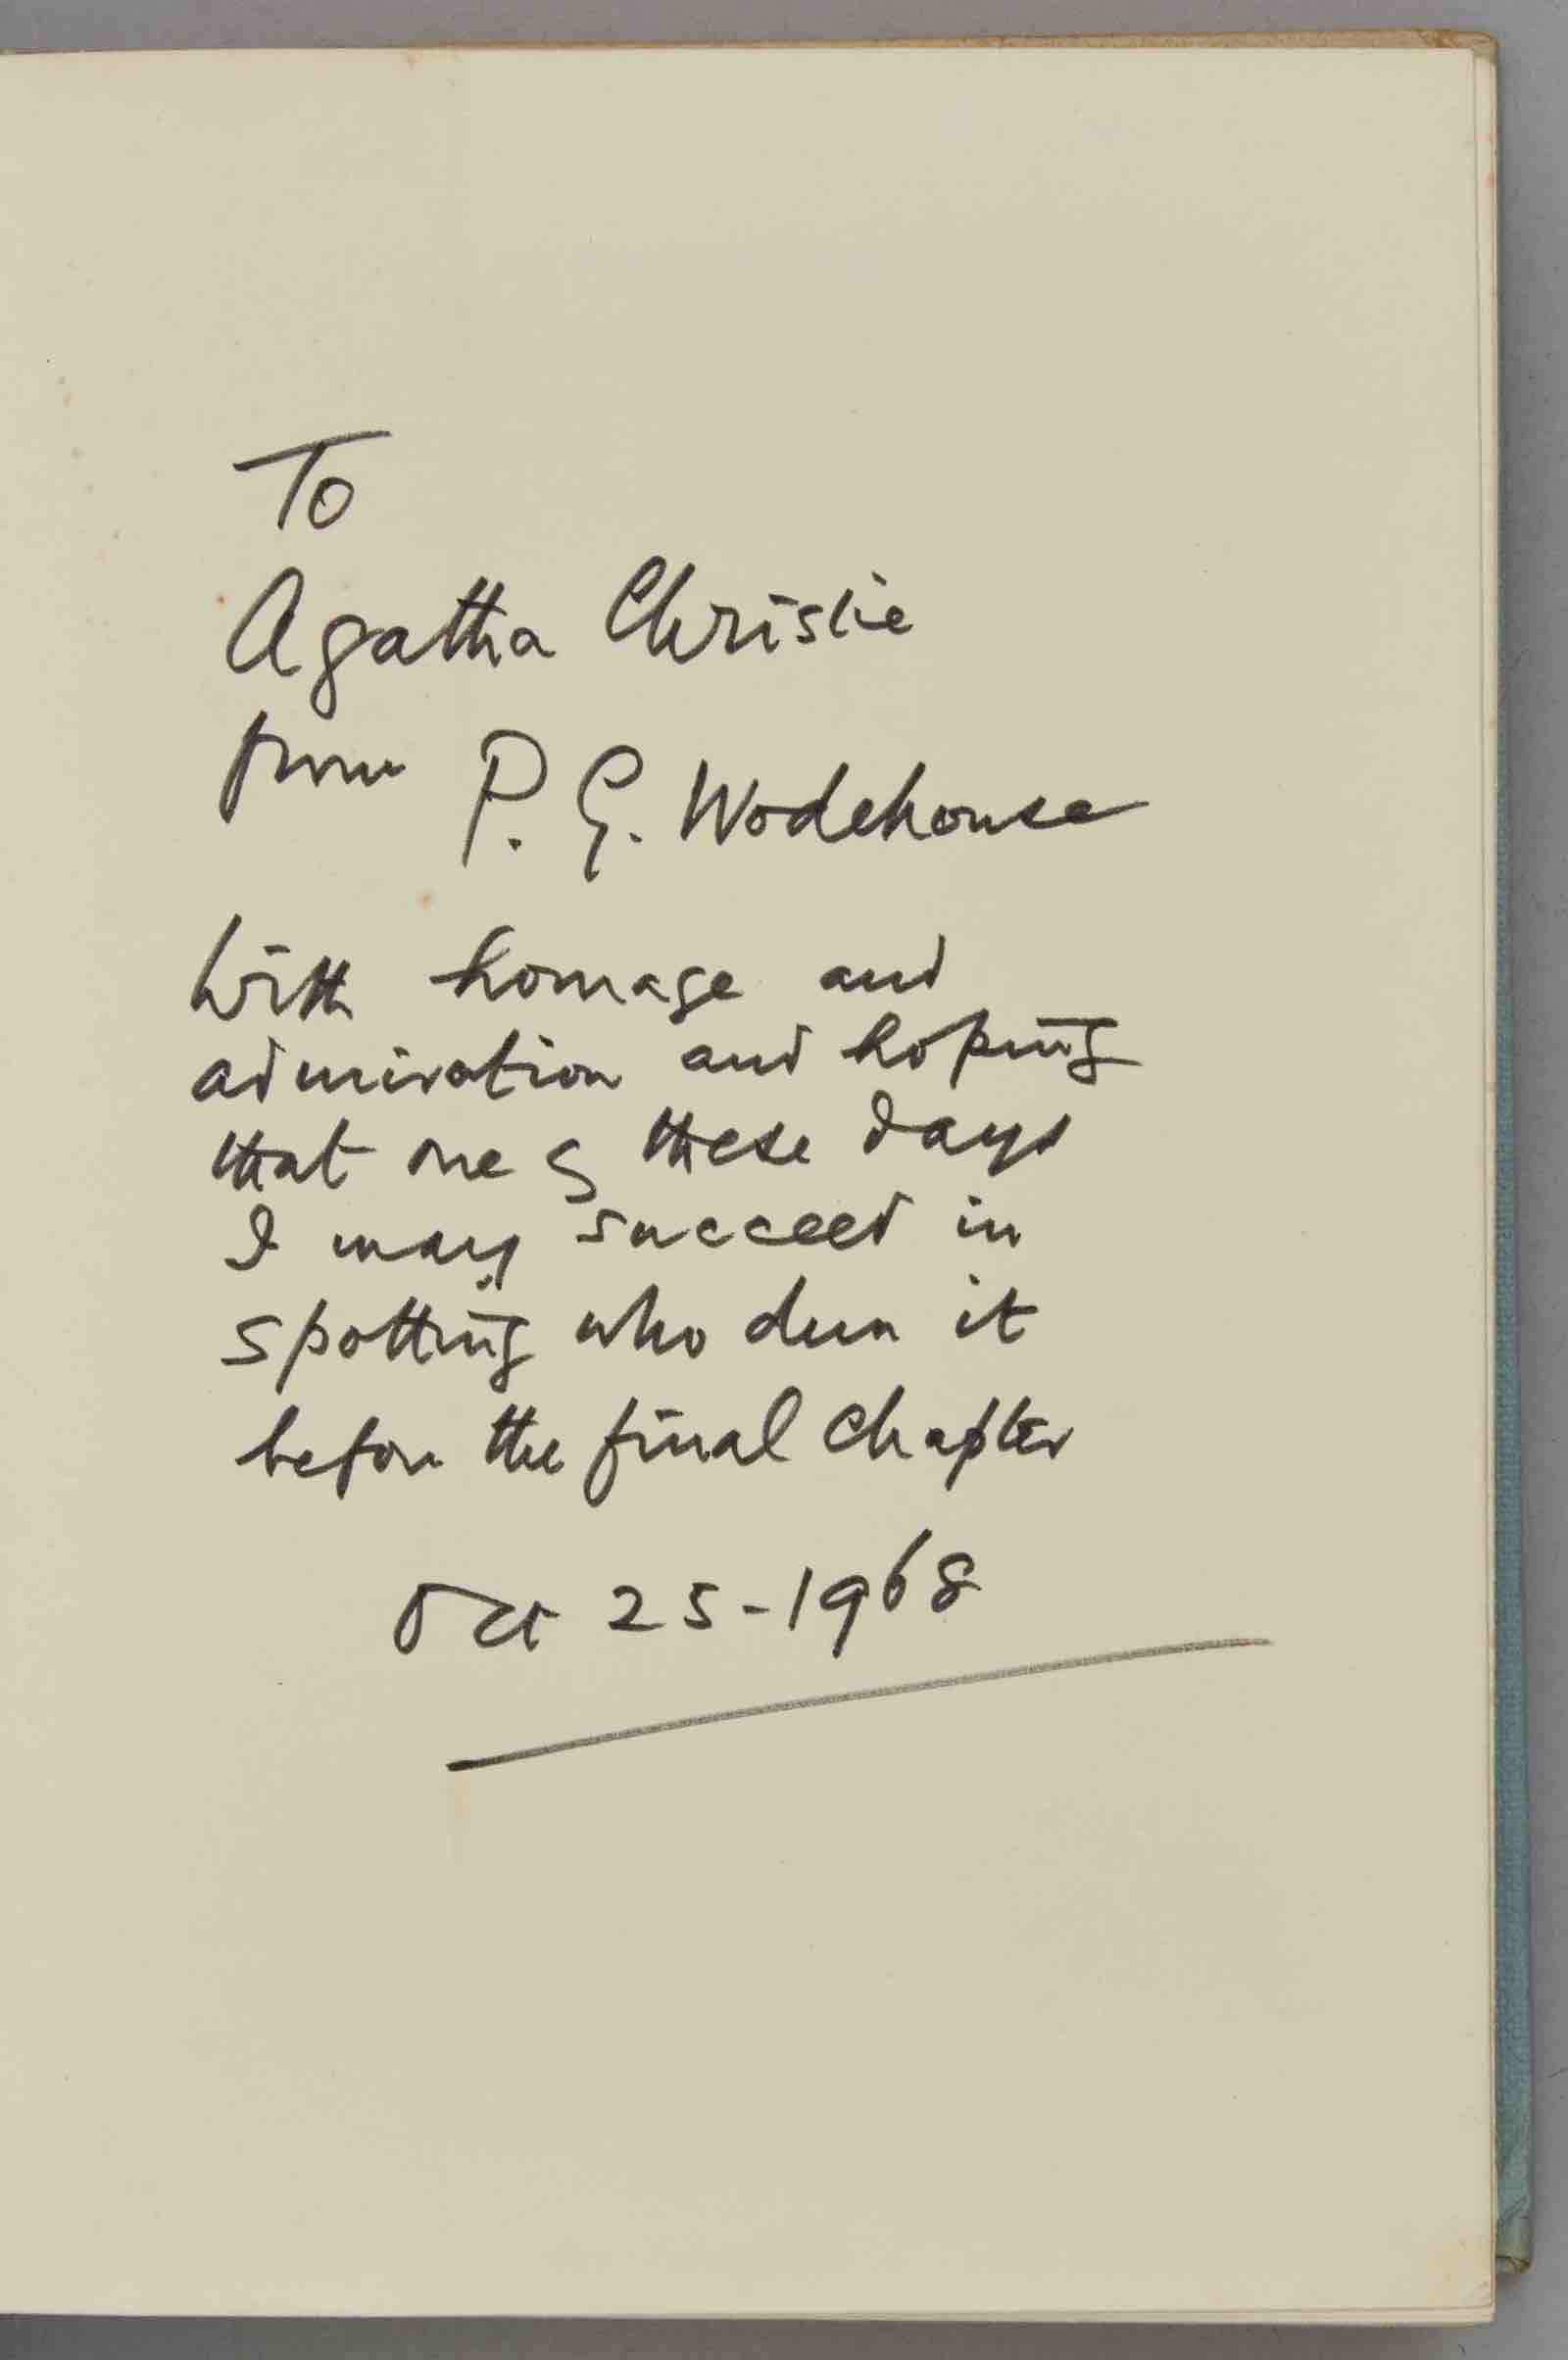 To
Agatha Christie
from P. G. Wodehouse
With homage and
admiration and hoping
that one of these days
I may succeed in
spotting who dun it
before the final chapter
Oct 25-1968